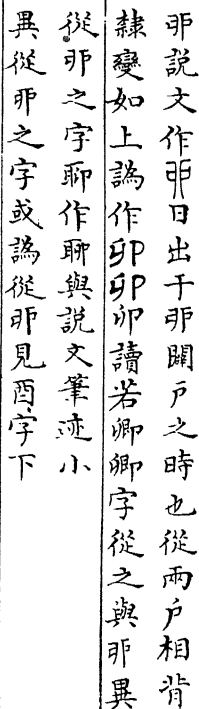 卯說文作戼日出于卯闢戶之時也從兩戶相背
隸變如上譌作卯卯卯讀若卿卿字從之與卯異
從卯之字聊作聊與說文筆迹小
異從卯之字或譌從卯見酉字下